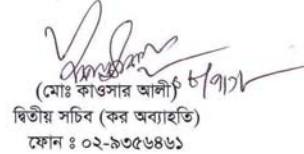 (মোঃ কাওসার আলী)
দ্বিতীয় সচিব (কর অব্যাহতি)
ফোন ঃ ০২-৯৩৫৬৪৬১